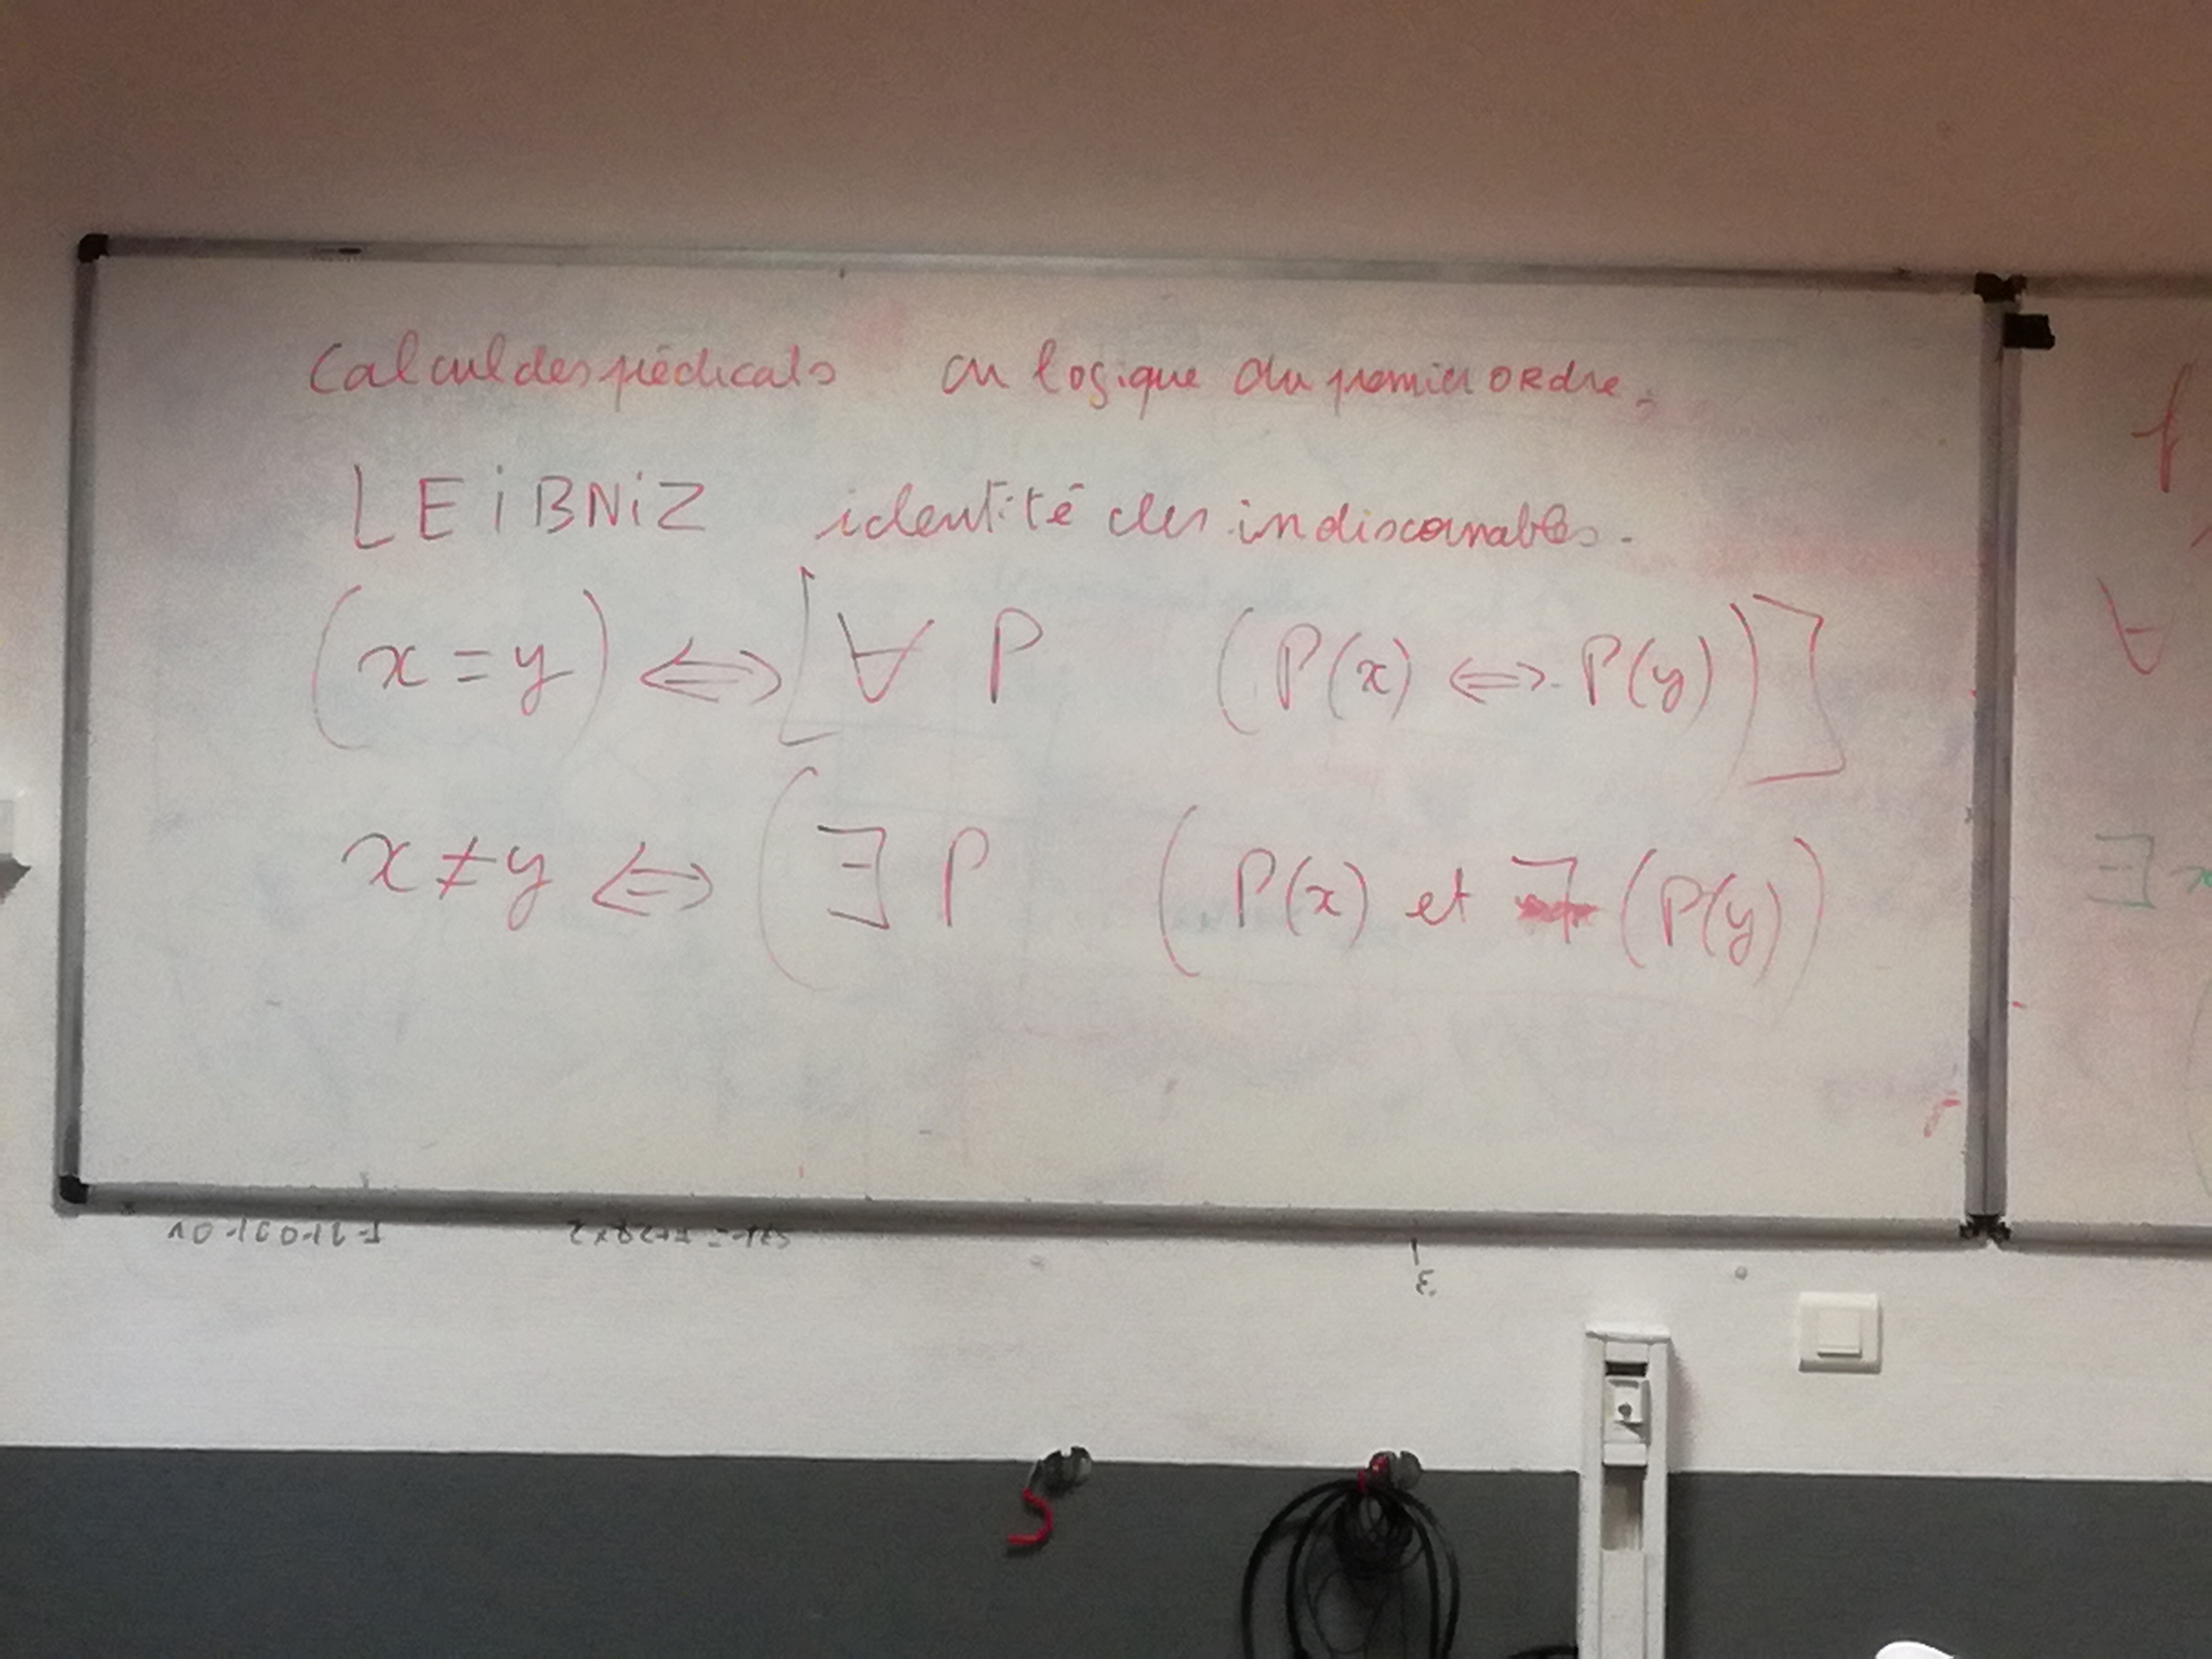 Calcul des prédicats ou logique du premier ordre.
LEiBNiZ identité des indiscernables.
(x = y) ⟺ [∀ P (P(x) ⟺ P(y))]
x ≠ y ⟺ (∃ P (P(x) et ¬ (P(y))
f
∀
∃ x
3